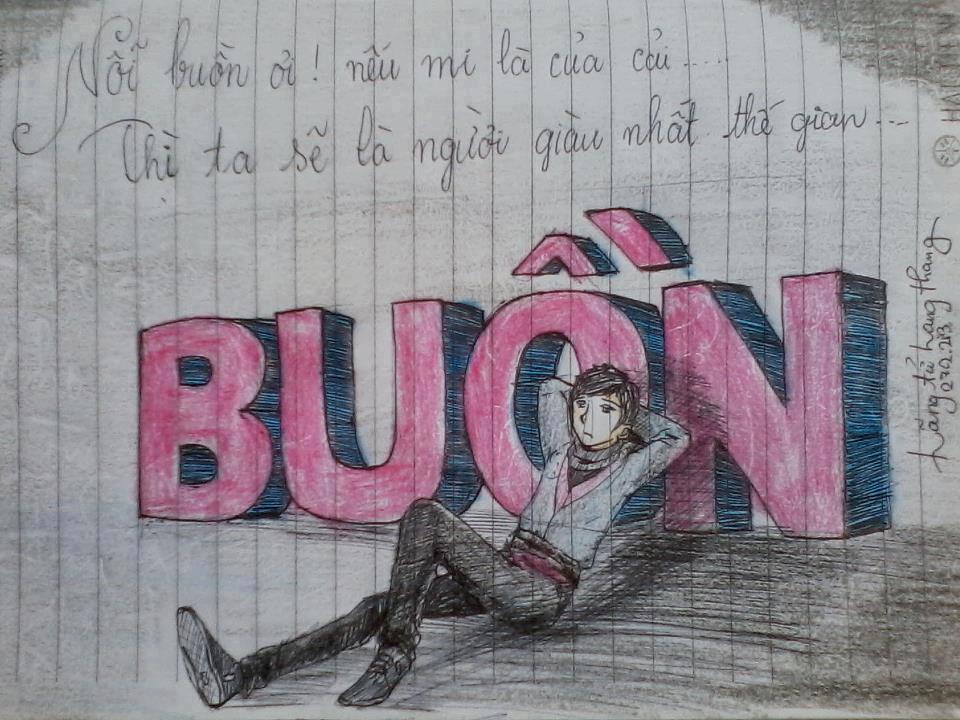 Nỗi buồn ơi! nếu mi là của cải....
Thì ta sẽ là người giàu nhất thế gian...
BUỒN
Lãng tử lang thang